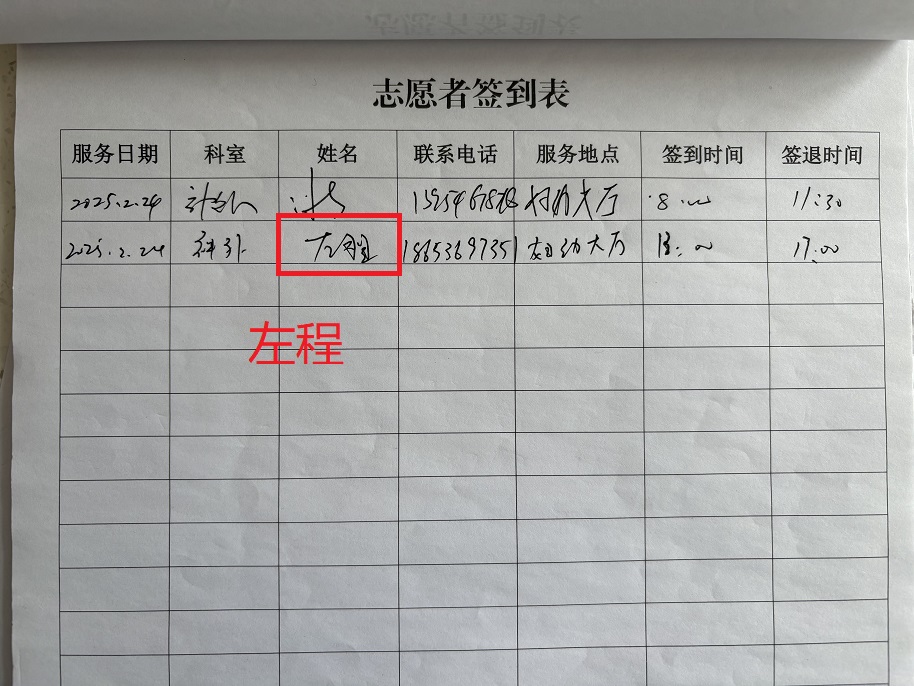 志愿者签到表
服务日期 科室 姓名 联系电话 服务地点 签到时间 签退时间
2025.2.24 8:00 11:30
2025.2.24 神外 左程 18653697351 大厅 13:00 17:00
左程